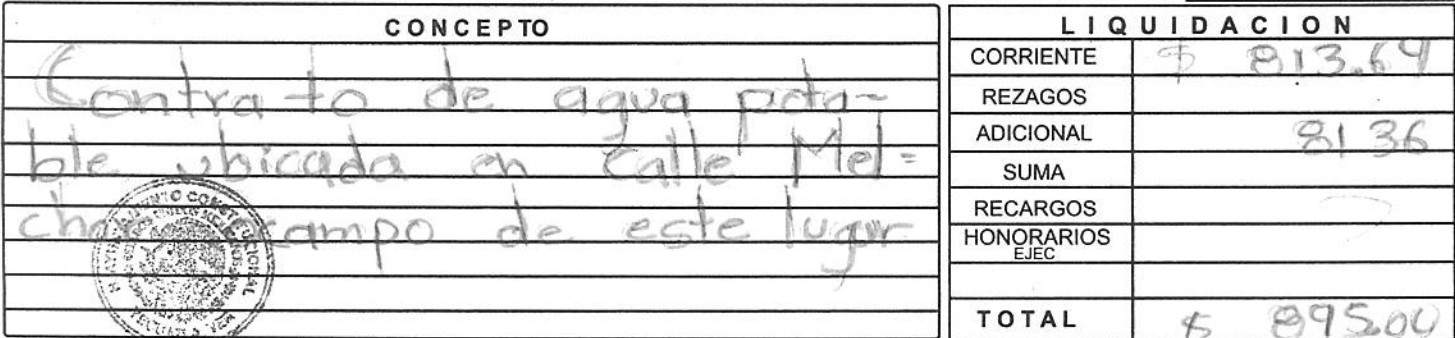 CONCEPTO
Contrato de agua pota-
ble ubicada en Calle Mel=
campo de este lugar
LIQUIDACION
CORRIENTE $ 813.64
REZAGOS
ADICIONAL 81 36
SUMA
RECARGOS
HONORARIOS
EJEC
TOTAL $ 895.00